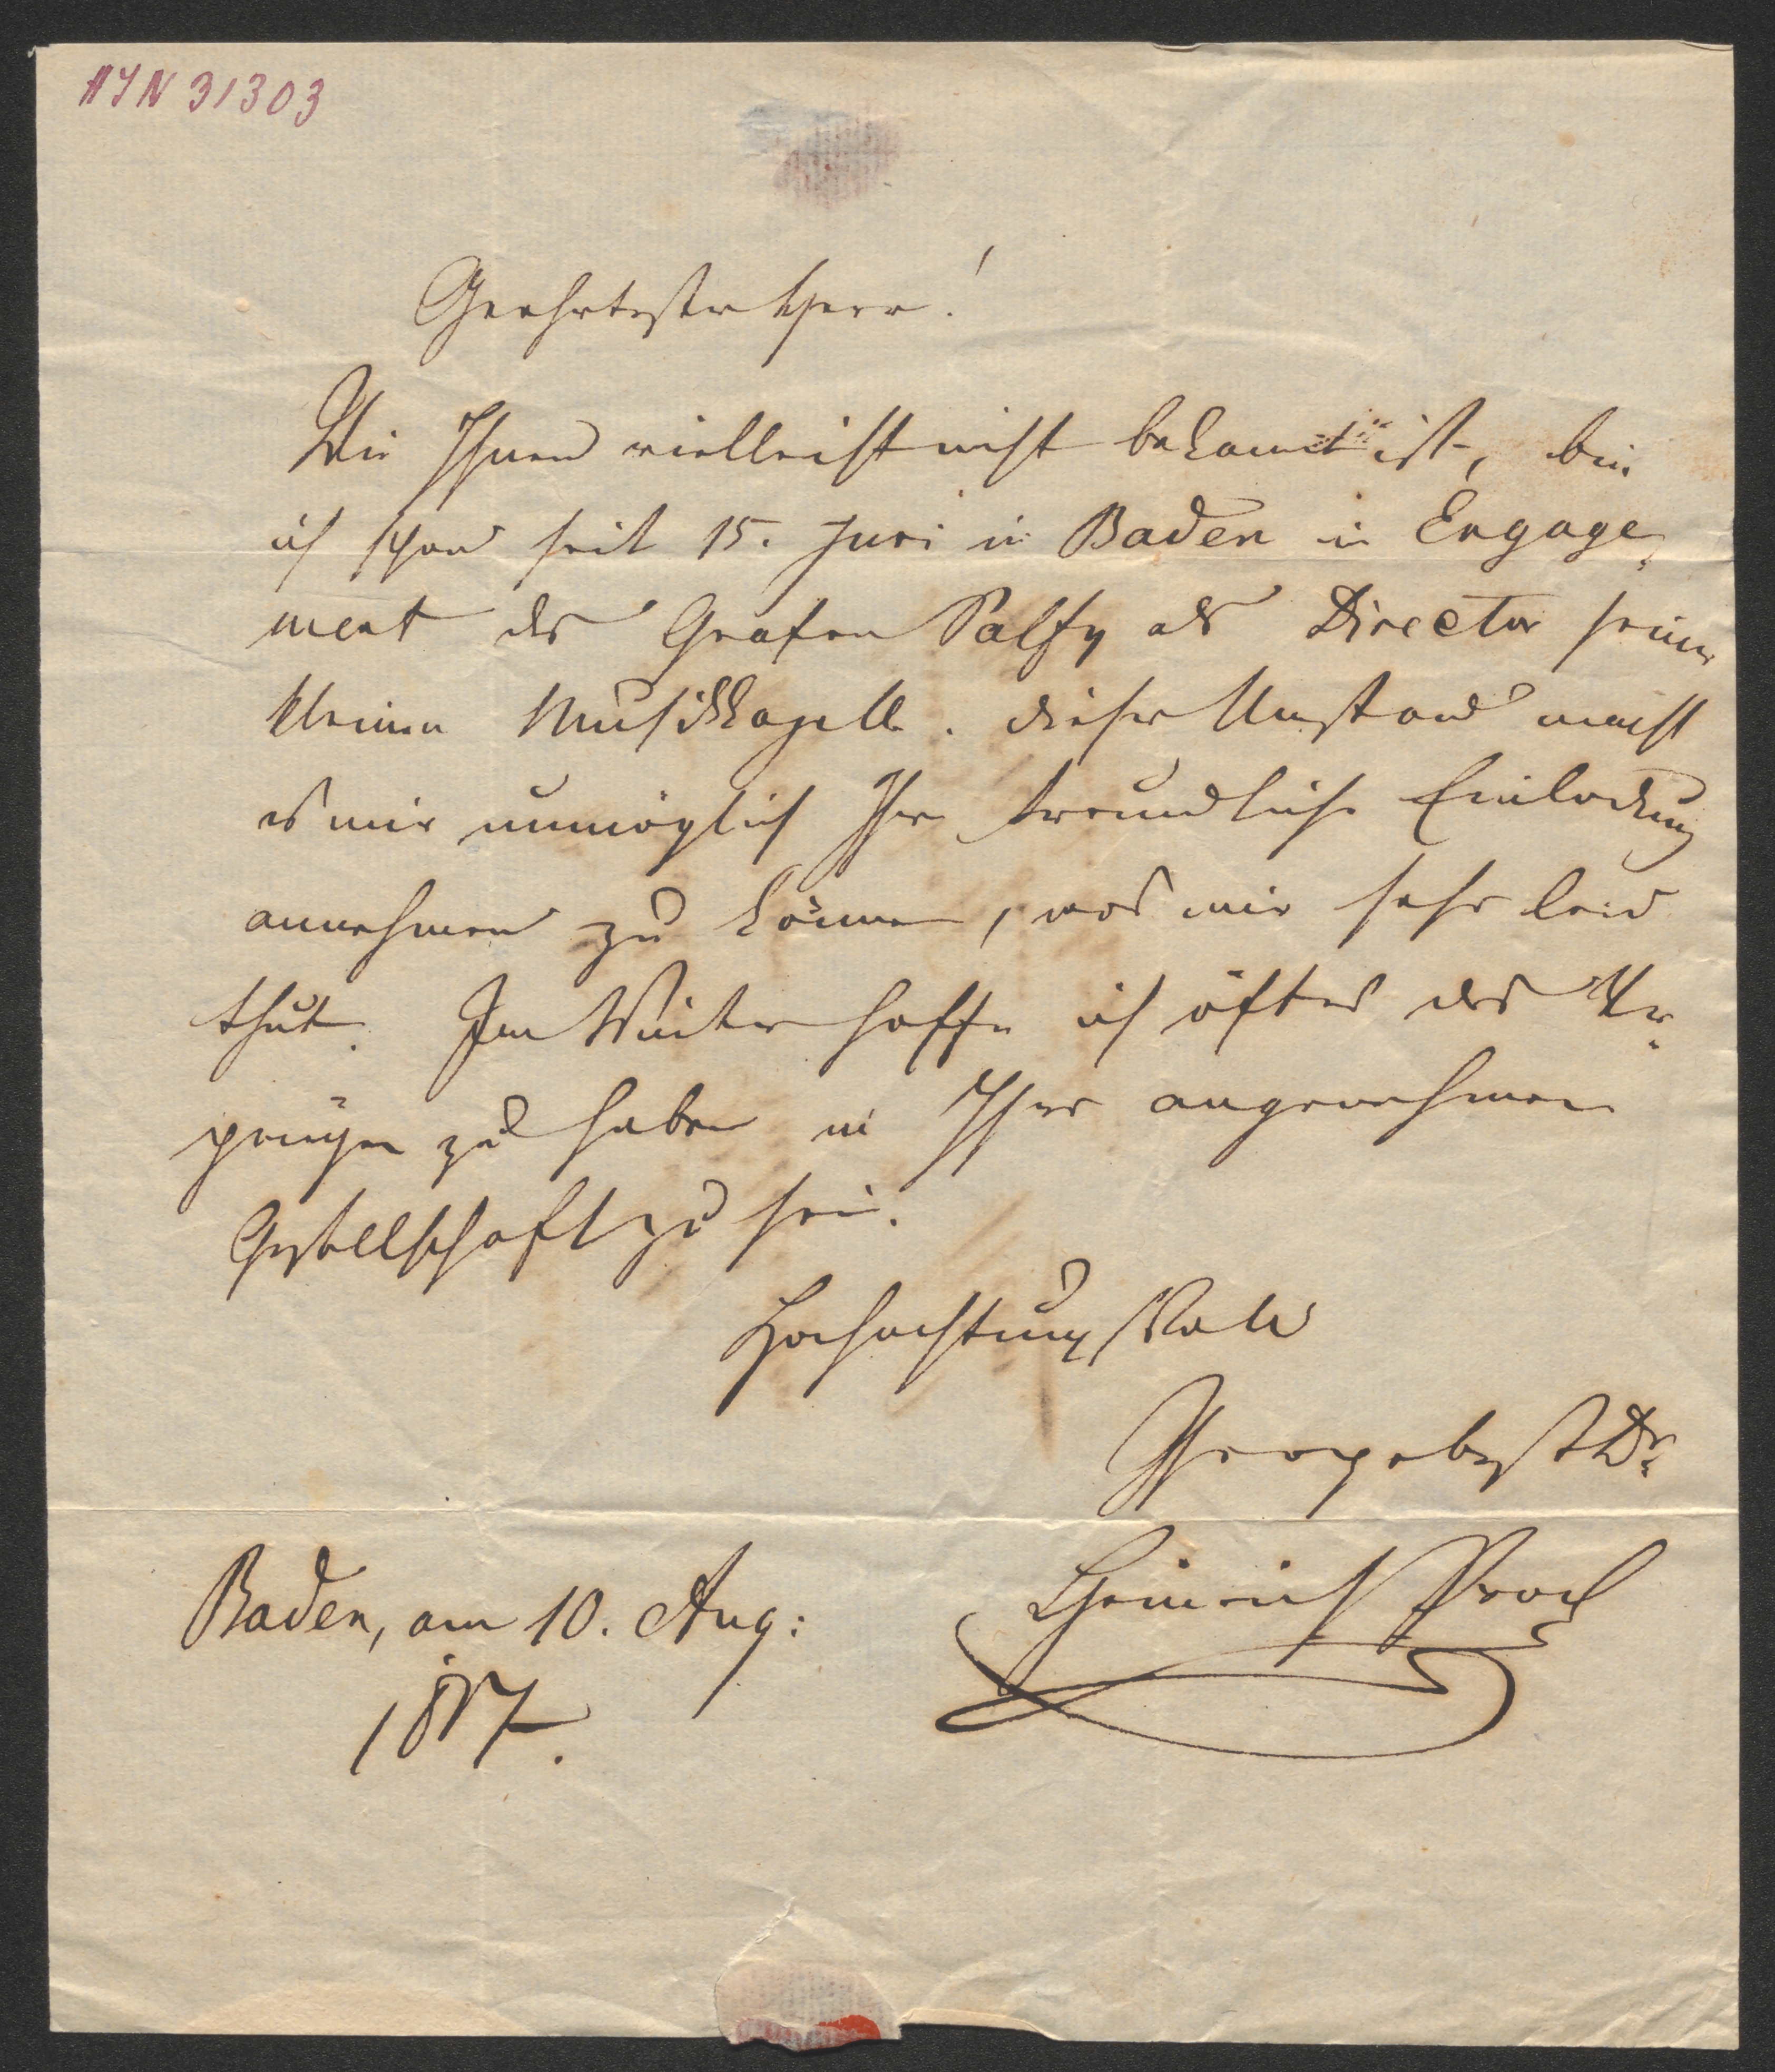 HIN 31303
Geehrtester Herr!
Wie Ihnen vielleicht nicht bekannt ist, bin
ich schon seit 15. Juni in Baden in Engage-
ment des Grafen Palfy als Director seiner
kleinen Musikkapelle. Dieser Umstand macht
es mir unmöglich Ihre freundliche Einladung
annehmen zu können, was mir sehr leid
thut. Im Winter hoffe ich öfters das Ver-
gnügen zu haben in Ihrer angenehmen
Gesellschaft zu sein.
Hochachtungsvoll
Ihr ergebenster Dr
Heinrich Proch
Baden, am 10. Aug: